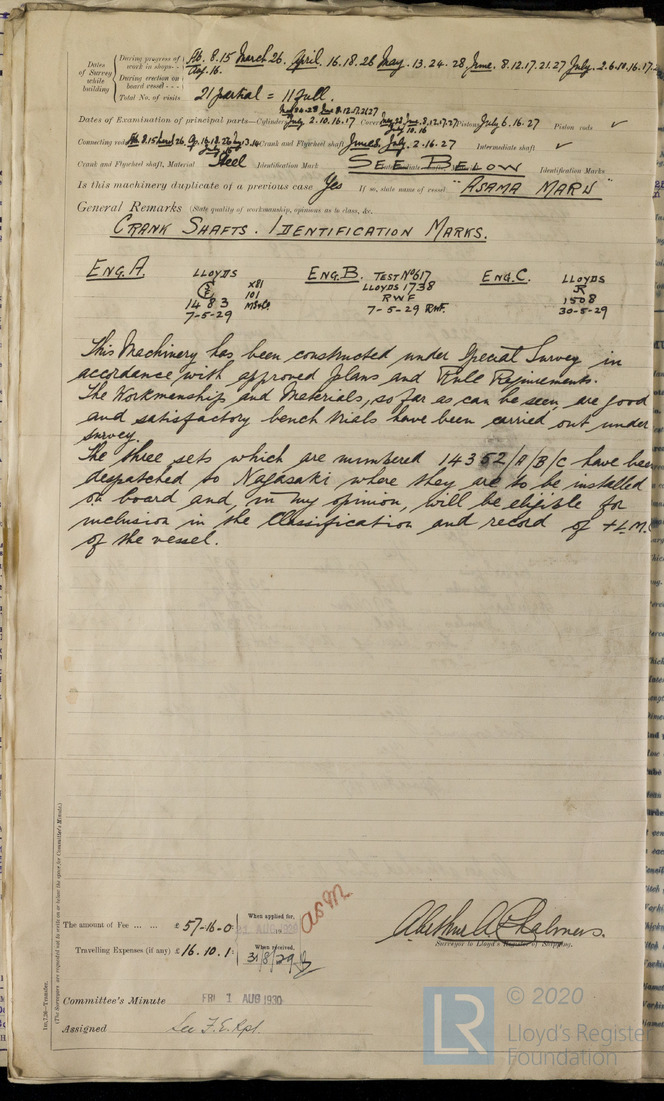 Dates of Survey while building
During progress of work in shops - - Feb. 8.15 March 26. April. 16.18.26 May. 13.24.28 June. 8.12.17.21.27 July. 2.6.10.16.17.
Aug. 16.
During erection on board vessel - - -
Total No. of visits 21 partial = 11 full.
Dates of Examination of principal parts—Cylinders July 2.10.16.17 Covers Pistons July 6.16.27 Piston rods ✓
Connecting rods Crank and Flywheel shaft June 8, July. 2.16.27 Intermediate shaft ✓
Crank and Flywheel shaft, Material Steel Identification Mark SEE BELOW Identification Marks
Is this machinery duplicate of a previous case Yes If so, state name of vessel "ASAMA MARU"
General Remarks (State quality of workmanship, opinions as to class, &c.
CRANK SHAFTS. IDENTIFICATION MARKS.
ENG. A. LLOYDS X81 ENG. B. TEST No 617 ENG. C. LLOYDS
101 LLOYDS 1738
1483 RWF 1508
7-5-29 7-5-29 RWF. 30-5-29
This Machinery has been constructed under Special Survey in
accordance with approved plans and Rule Requirements.
The Workmanship and Materials, so far as can be seen, are good
and satisfactory bench trials have been carried out under
survey.
The three sets which are numbered 14352/A/B/C have been
despatched to Nagasaki where they are to be installed
on board and, in my opinion, will be eligible for
inclusion in the Classification and record of +L.M.C
of the vessel.
The amount of Fee ... ... £ 57-16-0 When applied for,
Travelling Expenses (if any) £ 16.10.1 When received,
31/8/29
Surveyor to Lloyd's Register of Shipping.
Committee's Minute FRI 1 AUG 1930
Assigned See F.E. Rpt.
© 2020
LR Lloyd's Register
Foundation